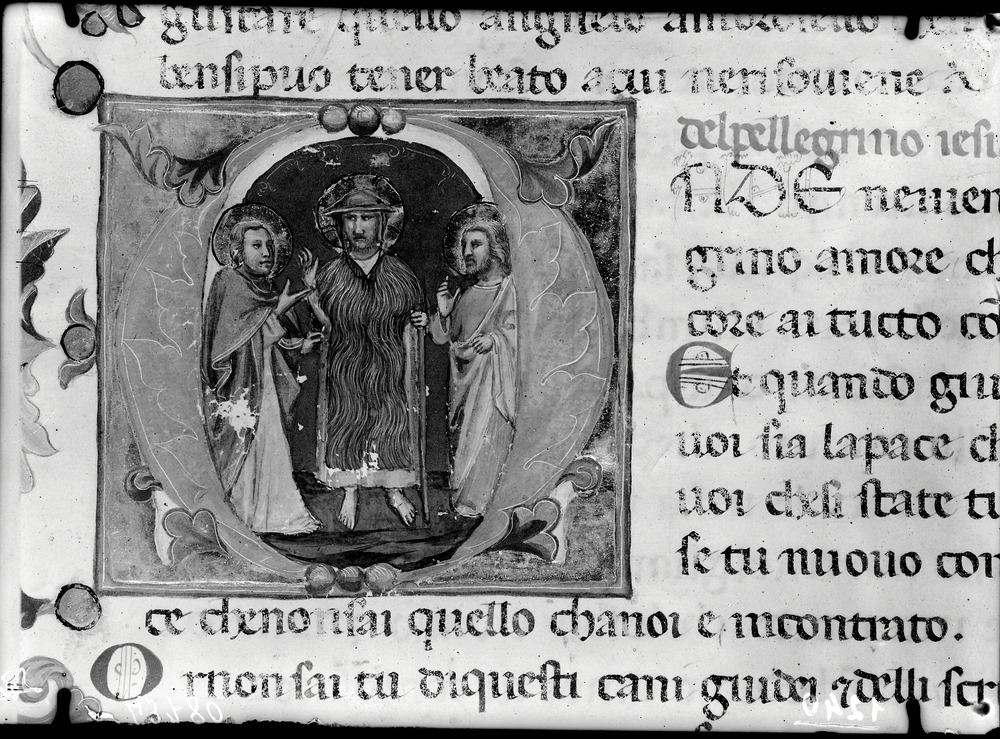 gustare quello anghelo
bensipuo tener beato acui nensouiene &
delpellegrino iesu
ONDE neuien
grino amore ch
core ai tucto co
Et quando giu
uoi sia lapace ch
uoi chesi state tu
se tu nuouo con
te chenonsai quello chanoi e incontrato.
Ornonsai tu diquesti cani giudei ⁊delli scr
1240